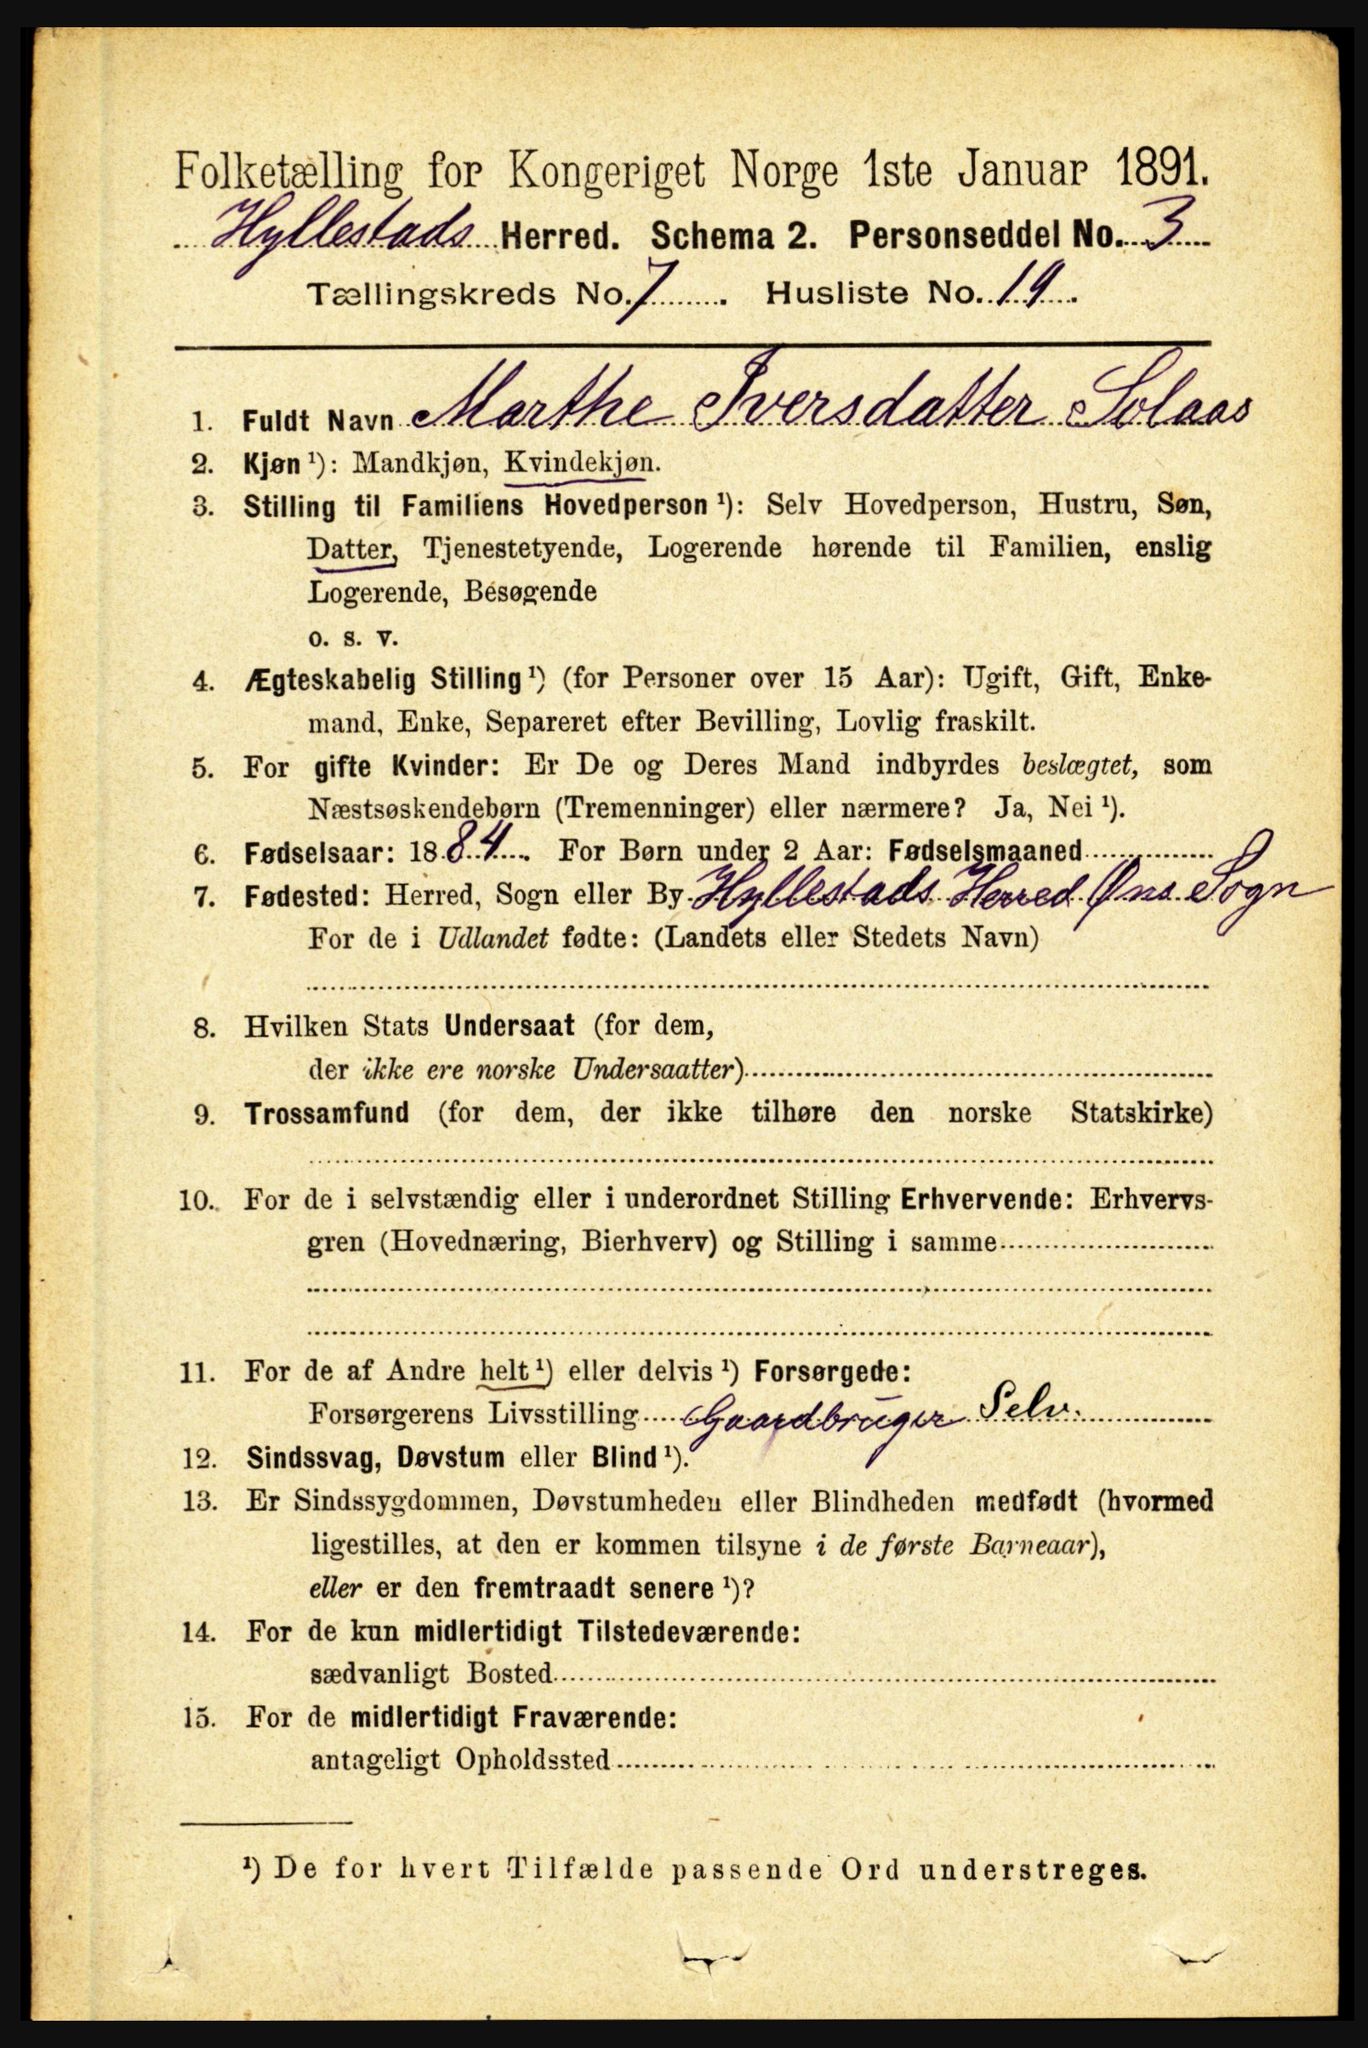 Folketælling for Kongeriget Norge 1ste Januar 1891.
Hyllestads Herred. Schema 2. Personseddel No. 3
Tællingskreds No. 7. Husliste No. 19.
1. Fuldt Navn Marthe Iversdatter Solaas
2. Kjøn ¹): Mandkjøn, Kvindekjøn.
3. Stilling til Familiens Hovedperson ¹): Selv Hovedperson, Hustru, Søn,
Datter, Tjenestetyende, Logerende hørende til Familien, enslig
Logerende, Besøgende
o. s. v.
4. Ægteskabelig Stilling ¹) (for Personer over 15 Aar): Ugift, Gift, Enke-
mand, Enke, Separeret efter Bevilling, Lovlig fraskilt.
5. For gifte Kvinder: Er De og Deres Mand indbyrdes beslægtet, som
Næstsøskendebørn (Tremenninger) eller nærmere? Ja, Nei ¹).
6. Fødselsaar: 1884. For Børn under 2 Aar: Fødselsmaaned
7. Fødested: Herred, Sogn eller By Hyllestads Herred Øns Sogn
For de i Udlandet fødte: (Landets eller Stedets Navn)
8. Hvilken Stats Undersaat (for dem,
der ikke ere norske Undersaatter)
9. Trossamfund (for dem, der ikke tilhøre den norske Statskirke)
10. For de i selvstændig eller i underordnet Stilling Erhvervende: Erhvervs-
gren (Hovednæring, Bierhverv) og Stilling i samme
11. For de af Andre helt ¹) eller delvis ¹) Forsørgede:
Forsørgerens Livsstilling Gaardbruger Selv.
12. Sindssvag, Døvstum eller Blind ¹).
13. Er Sindssygdommen, Døvstumheden eller Blindheden medfødt (hvormed
ligestilles, at den er kommen tilsyne i de første Barneaar),
eller er den fremtraadt senere ¹)?
14. For de kun midlertidigt Tilstedeværende:
sædvanligt Bosted
15. For de midlertidigt Fraværende:
antageligt Opholdssted
¹) De for hvert Tilfælde passende Ord understreges.